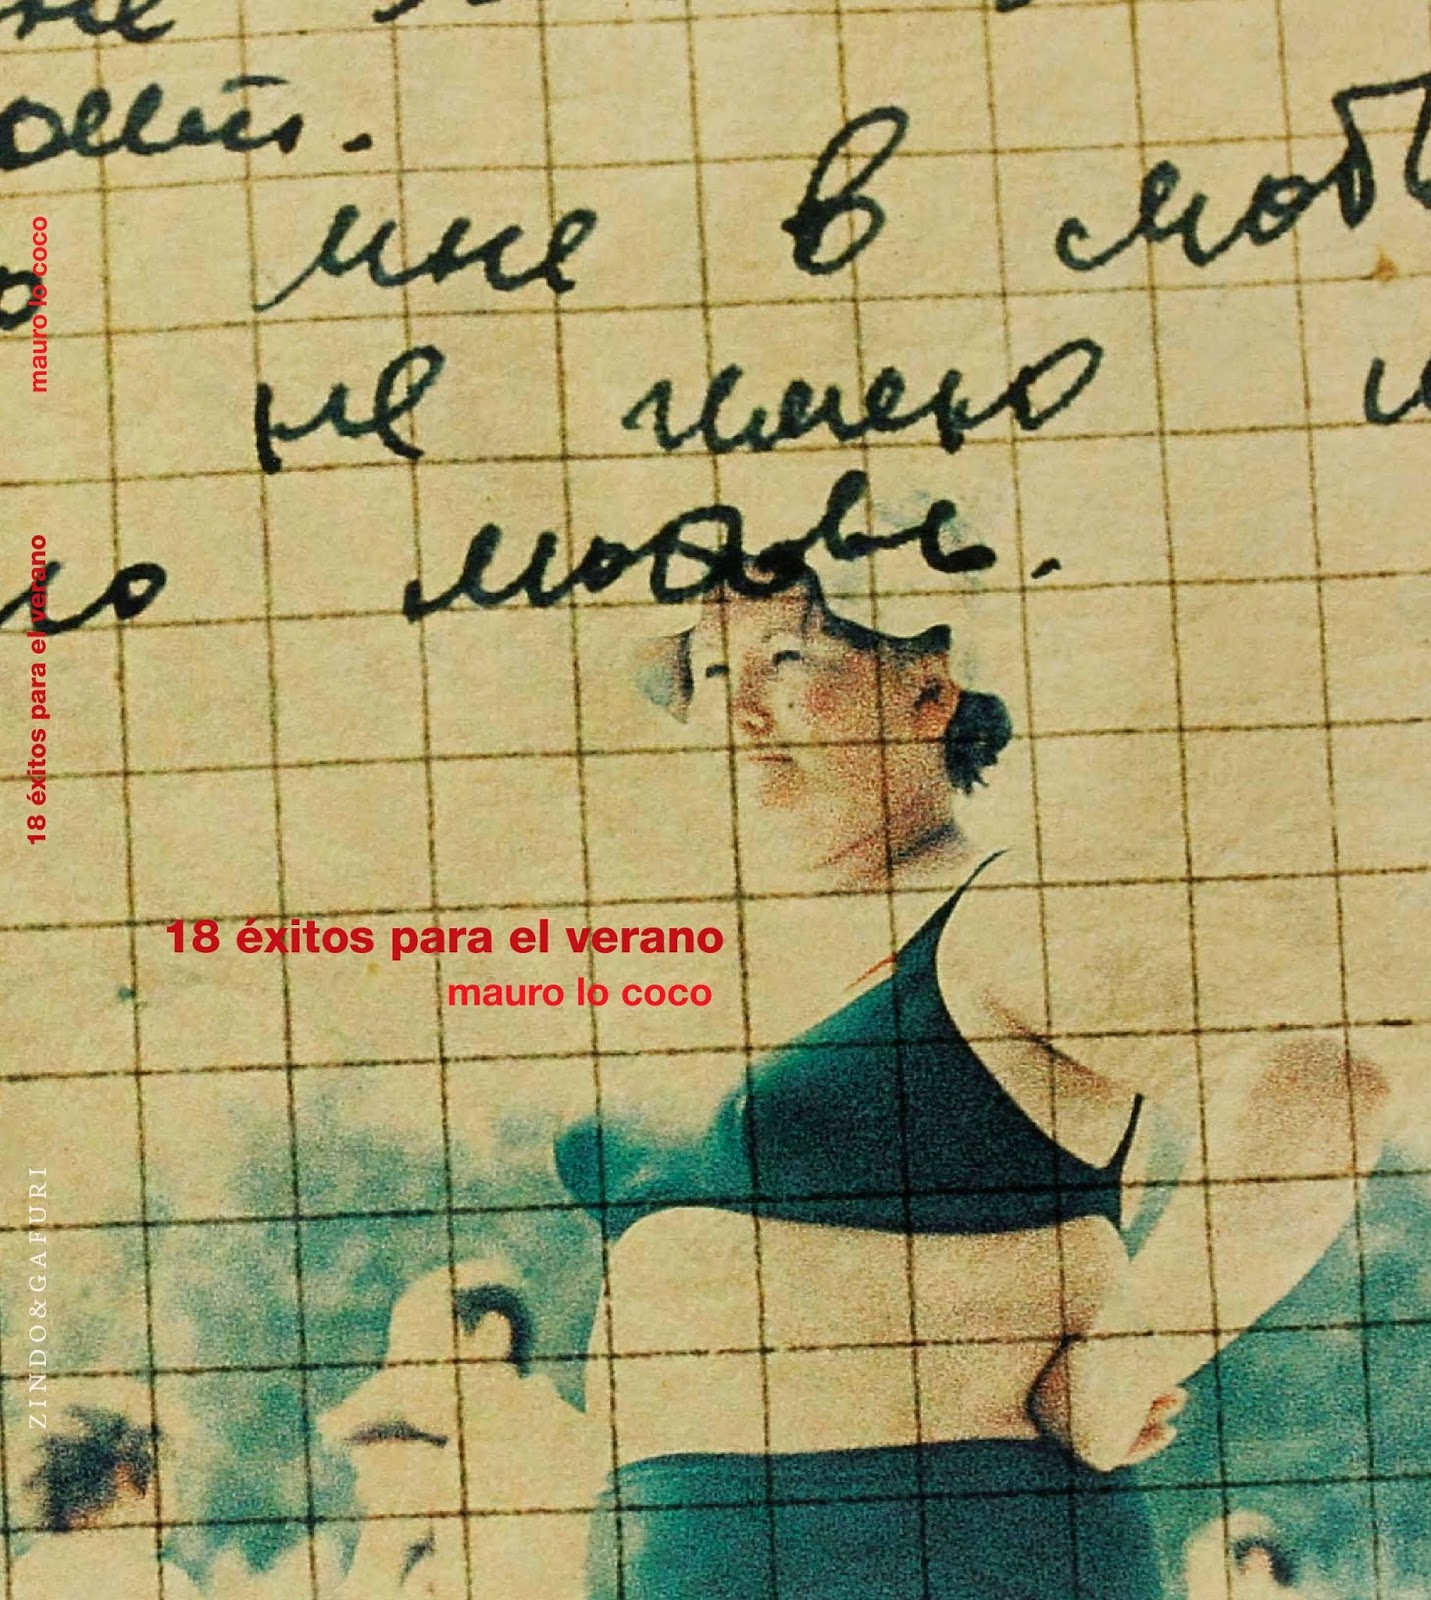 не
мне в люб
не имею
любовь.
mauro lo coco
18 éxitos para el verano
ZINDO&GAFURI
18 éxitos para el verano
mauro lo coco